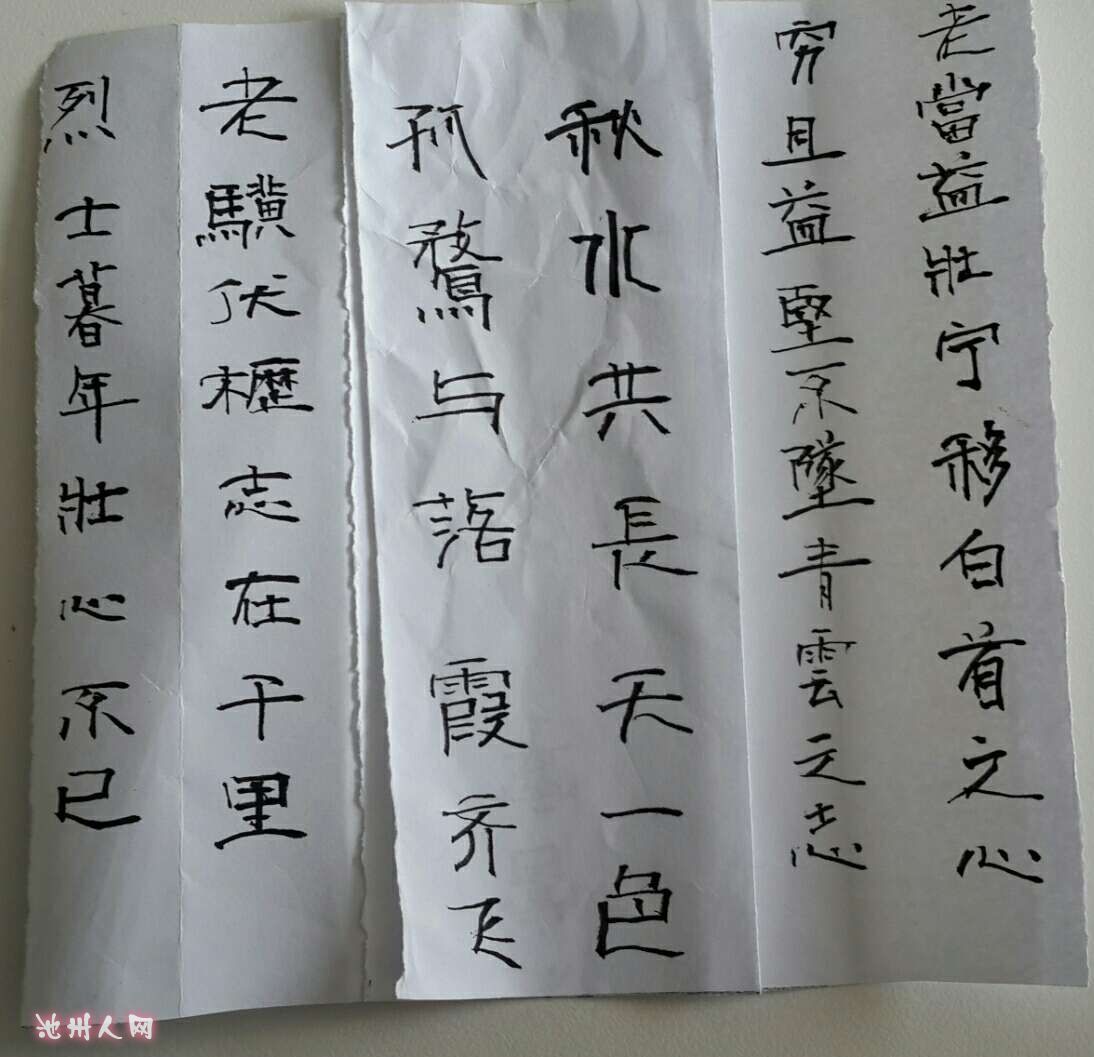 老當益壯宁移白首之心
穷且益堅不墜青雲之志
秋水共長天一色
孤鶩与落霞齐飞
老驥伏櫪志在千里
烈士暮年壯心不已
池州人网